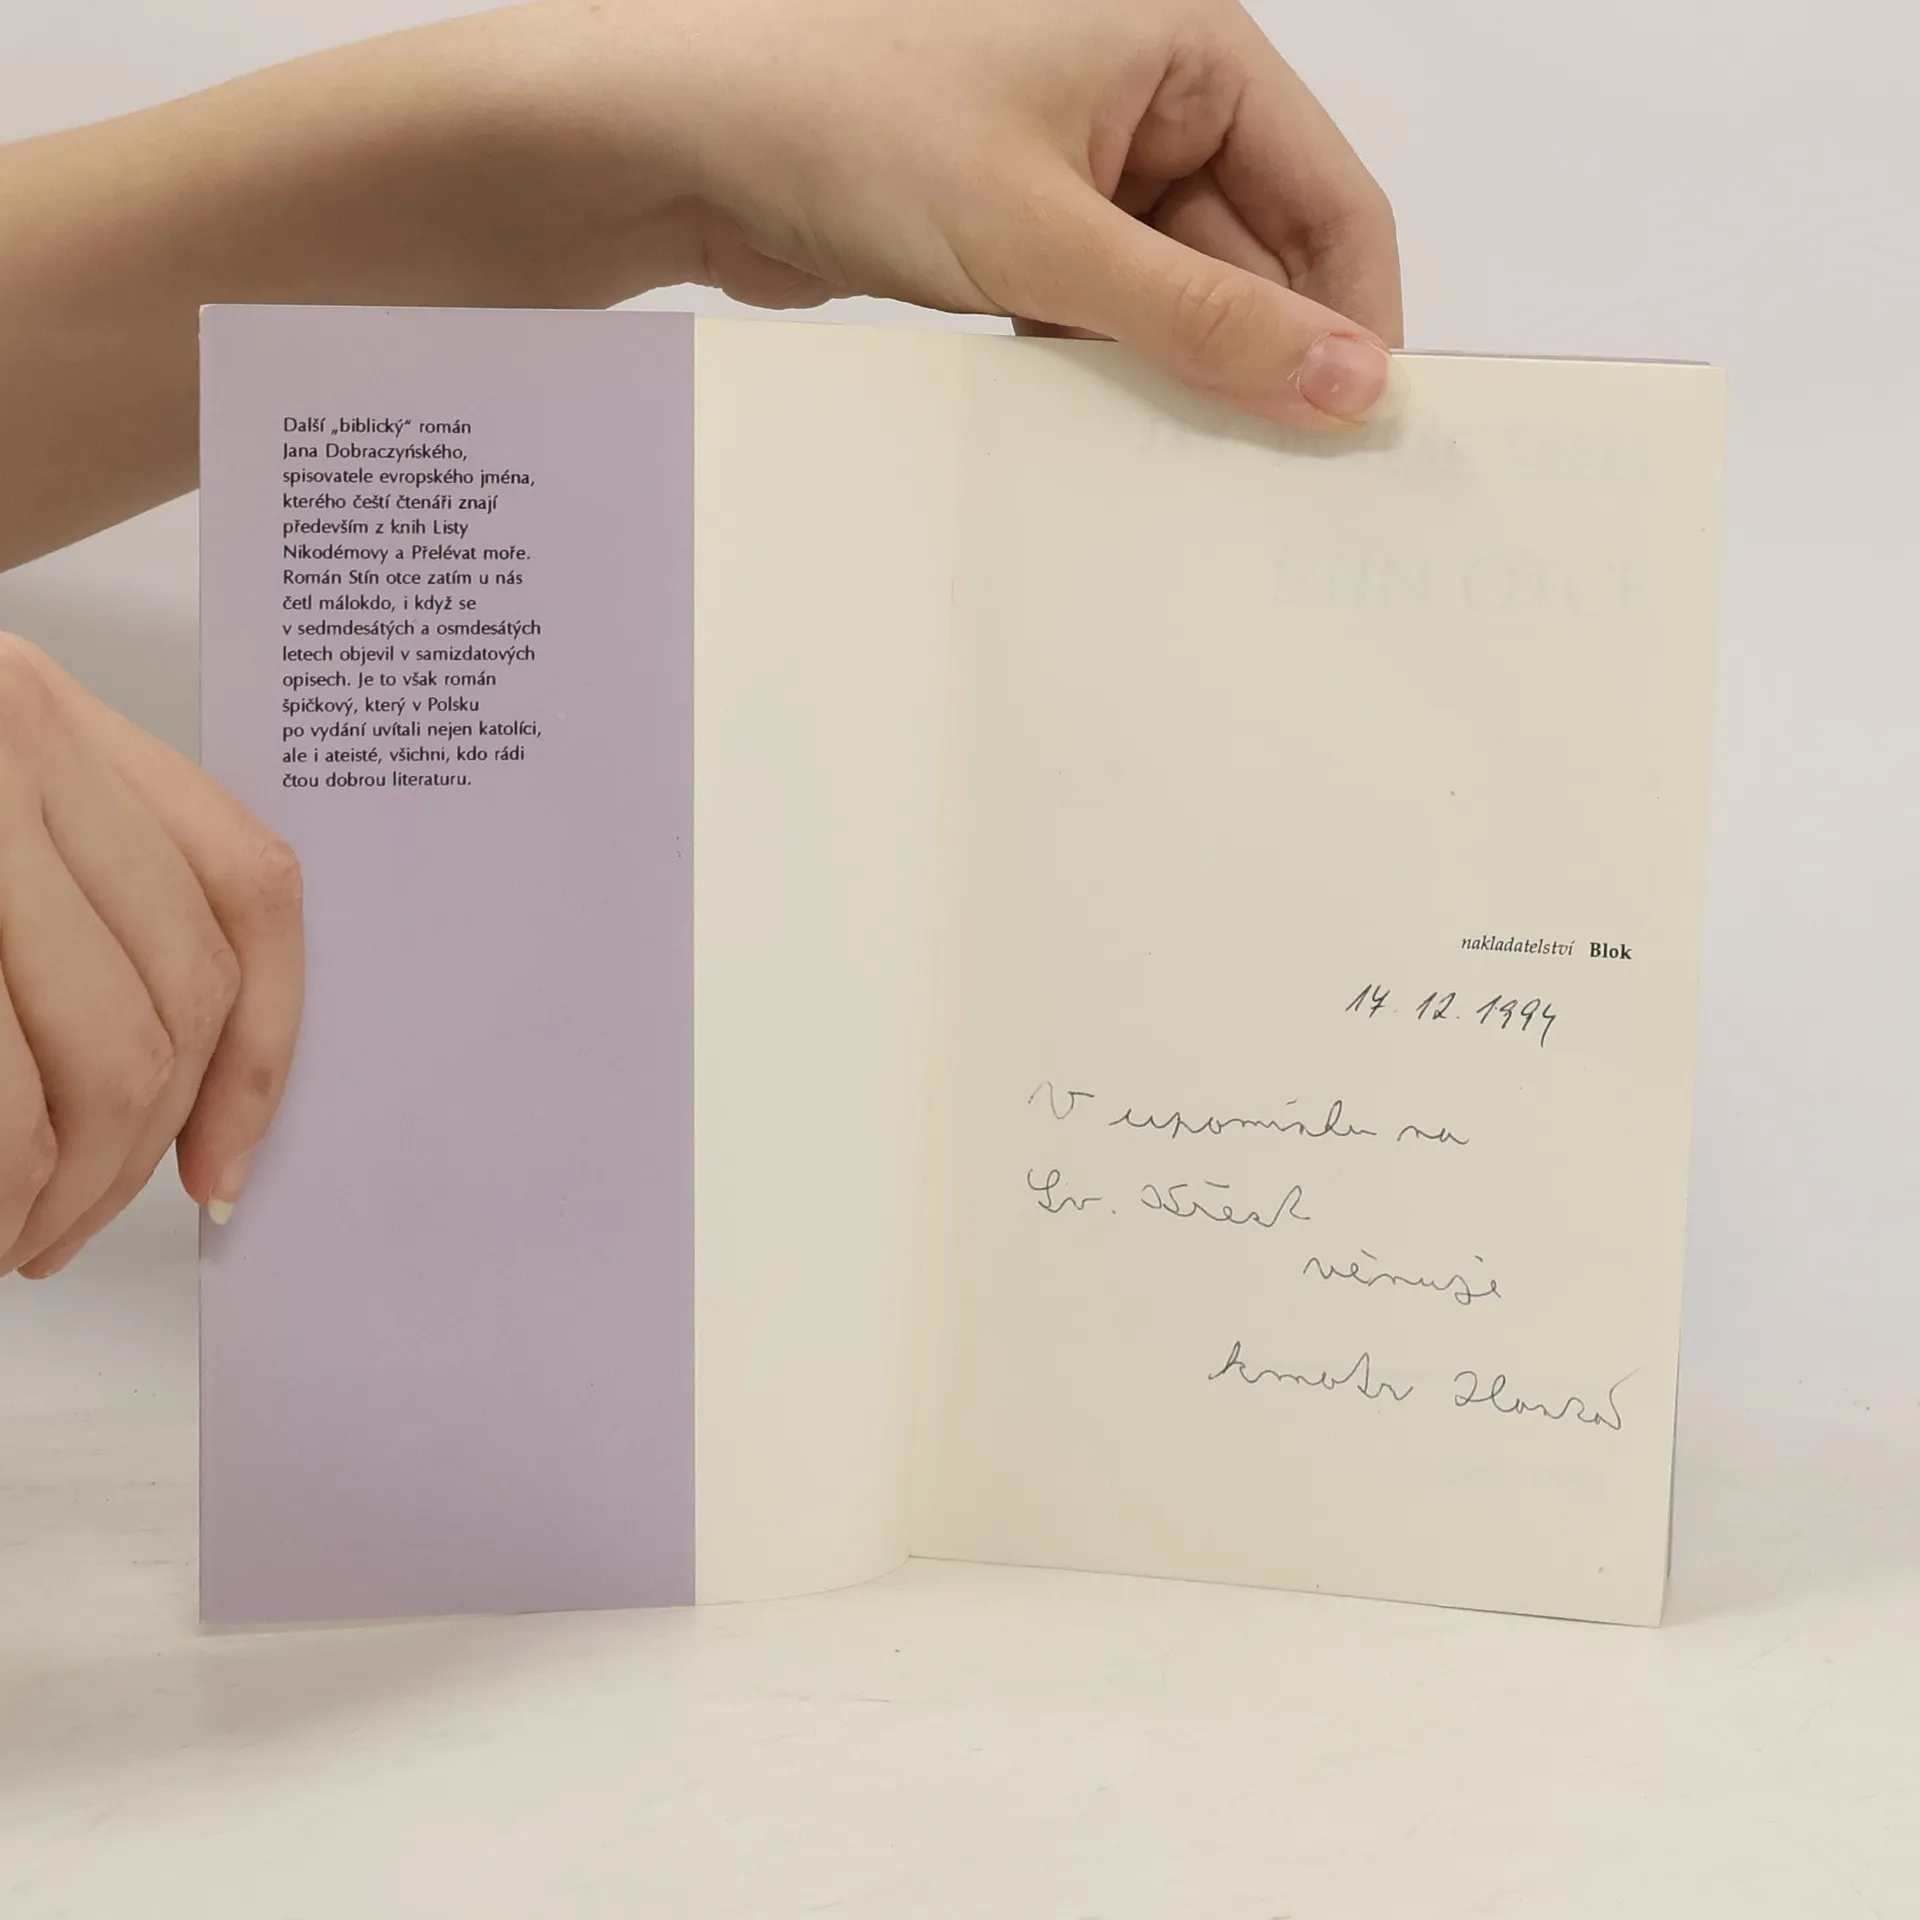 Další „biblický“ román
Jana Dobraczyńského,
spisovatele evropského jména,
kterého čeští čtenáři znají
především z knih Listy
Nikodémovy a Přelévat moře.
Román Stín otce zatím u nás
četl málokdo, i když se
v sedmdesátých a osmdesátých
letech objevil v samizdatových
opisech. Je to však román
špičkový, který v Polsku
po vydání uvítali nejen katolíci,
ale i ateisté, všichni, kdo rádi
čtou dobrou literaturu.
nakladatelství Blok
17. 12. 1994
V upomínku na
Sv. Křest
věnuje
kmotr